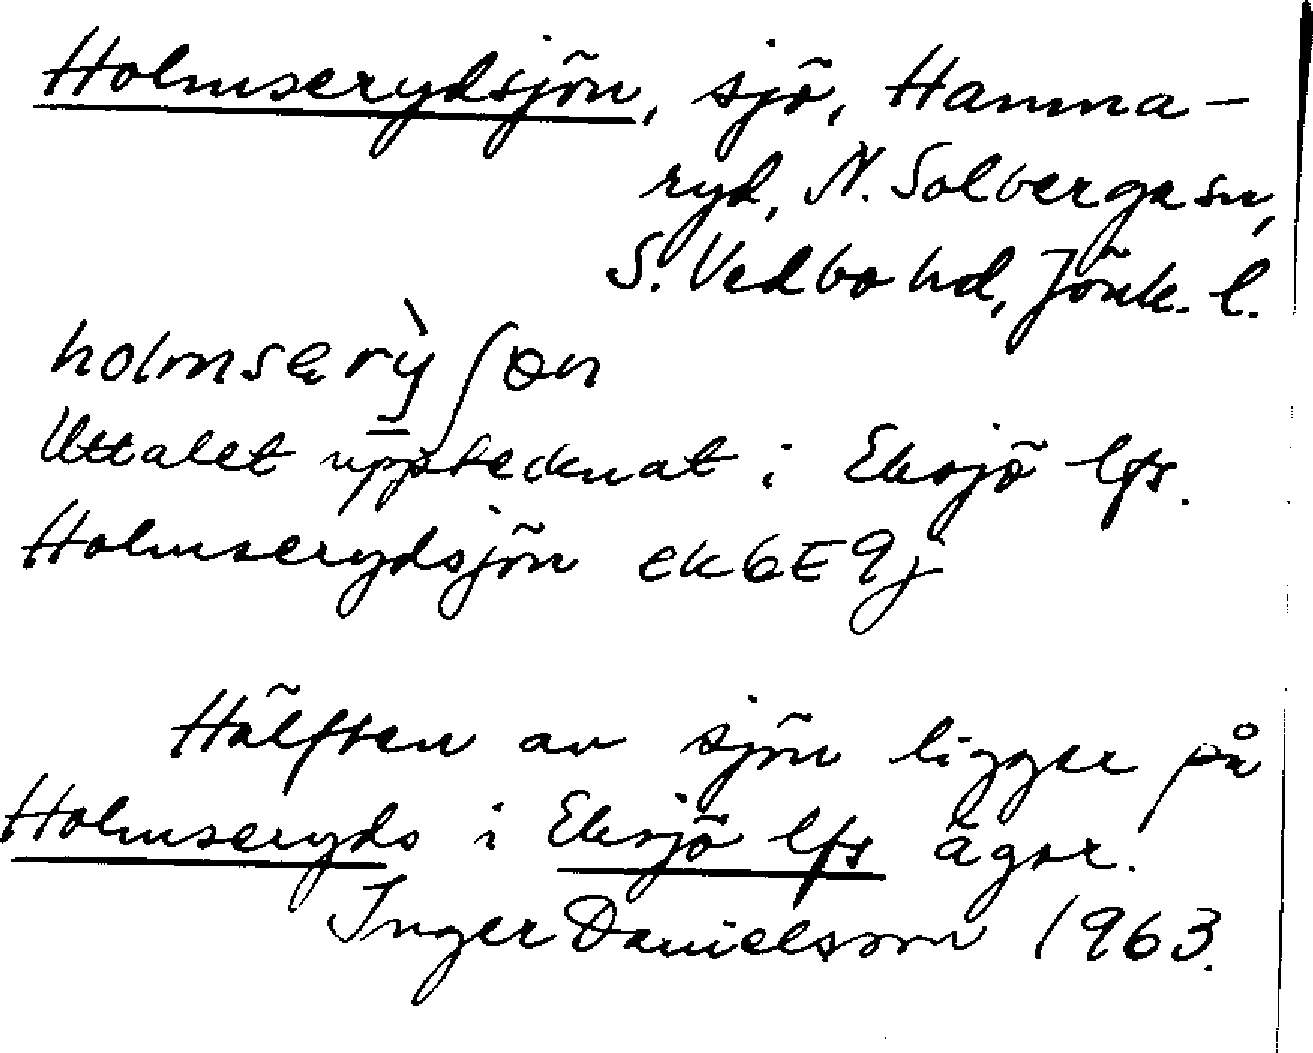 Holmserydsjön, sjö, Hamma-
ryd, N. Solberga sn,
S. Vedbo hd, Jönk. l.
holmserỳ̠ʃøn
Uttalet upptecknat i Eksjö lfs.
Holmserydsjön ek 6E9j
Hälften av sjön ligger på
Holmseryds i Eksjö lfs ägor.
Inger Danielsson 1963.